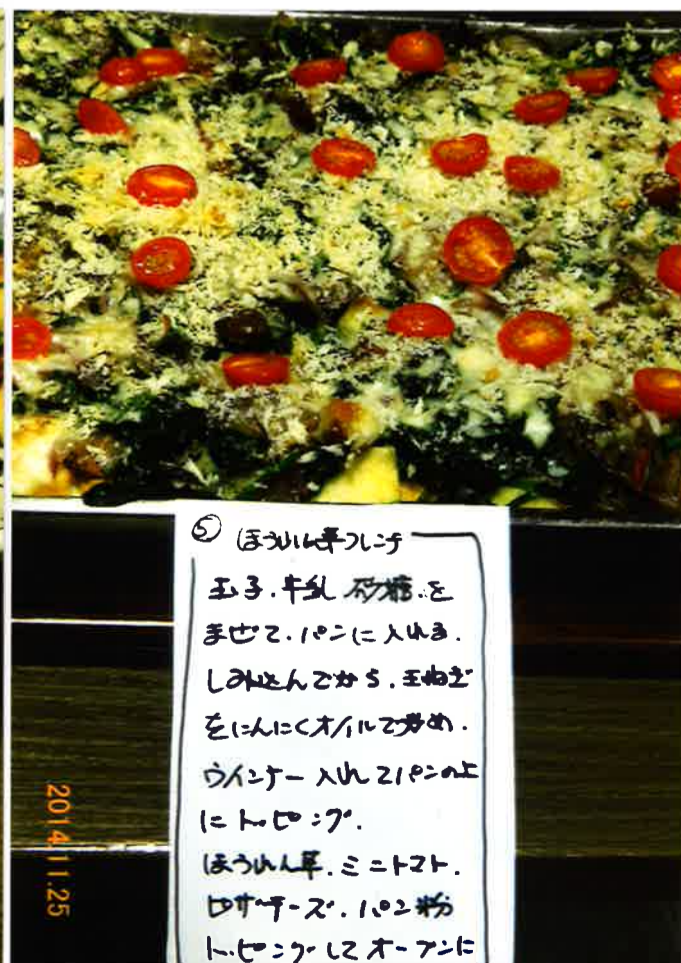 ⑤ ほうれん草フレンチ
玉子.牛乳 砂糖.を
まぜて.パンに入れる.
しみ込んでから.玉ねぎ
をにんにくオイルで炒め.
ウインナー入れてパンの上
にトッピング.
ほうれん草.ミニトマト.
ピザチーズ.パン粉
トッピングしてオーブンに
2014.11.25